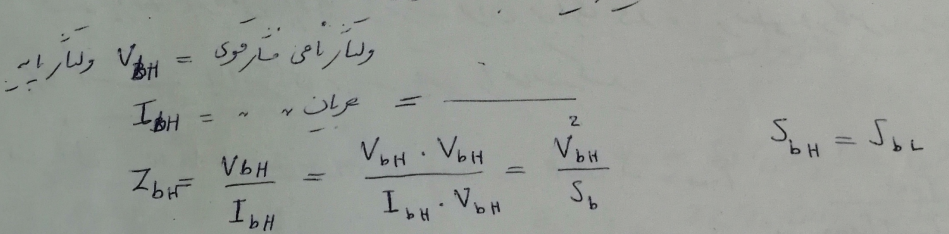 ولتاژ پایه V_bH = ولتاژ نامی فشار قوی
I_bH = 〃 〃 جریان = ———
Z_bH = V_bH / I_bH = V_bH · V_bH / I_bH · V_bH = V_bH² / S_b
S_bH = S_bL